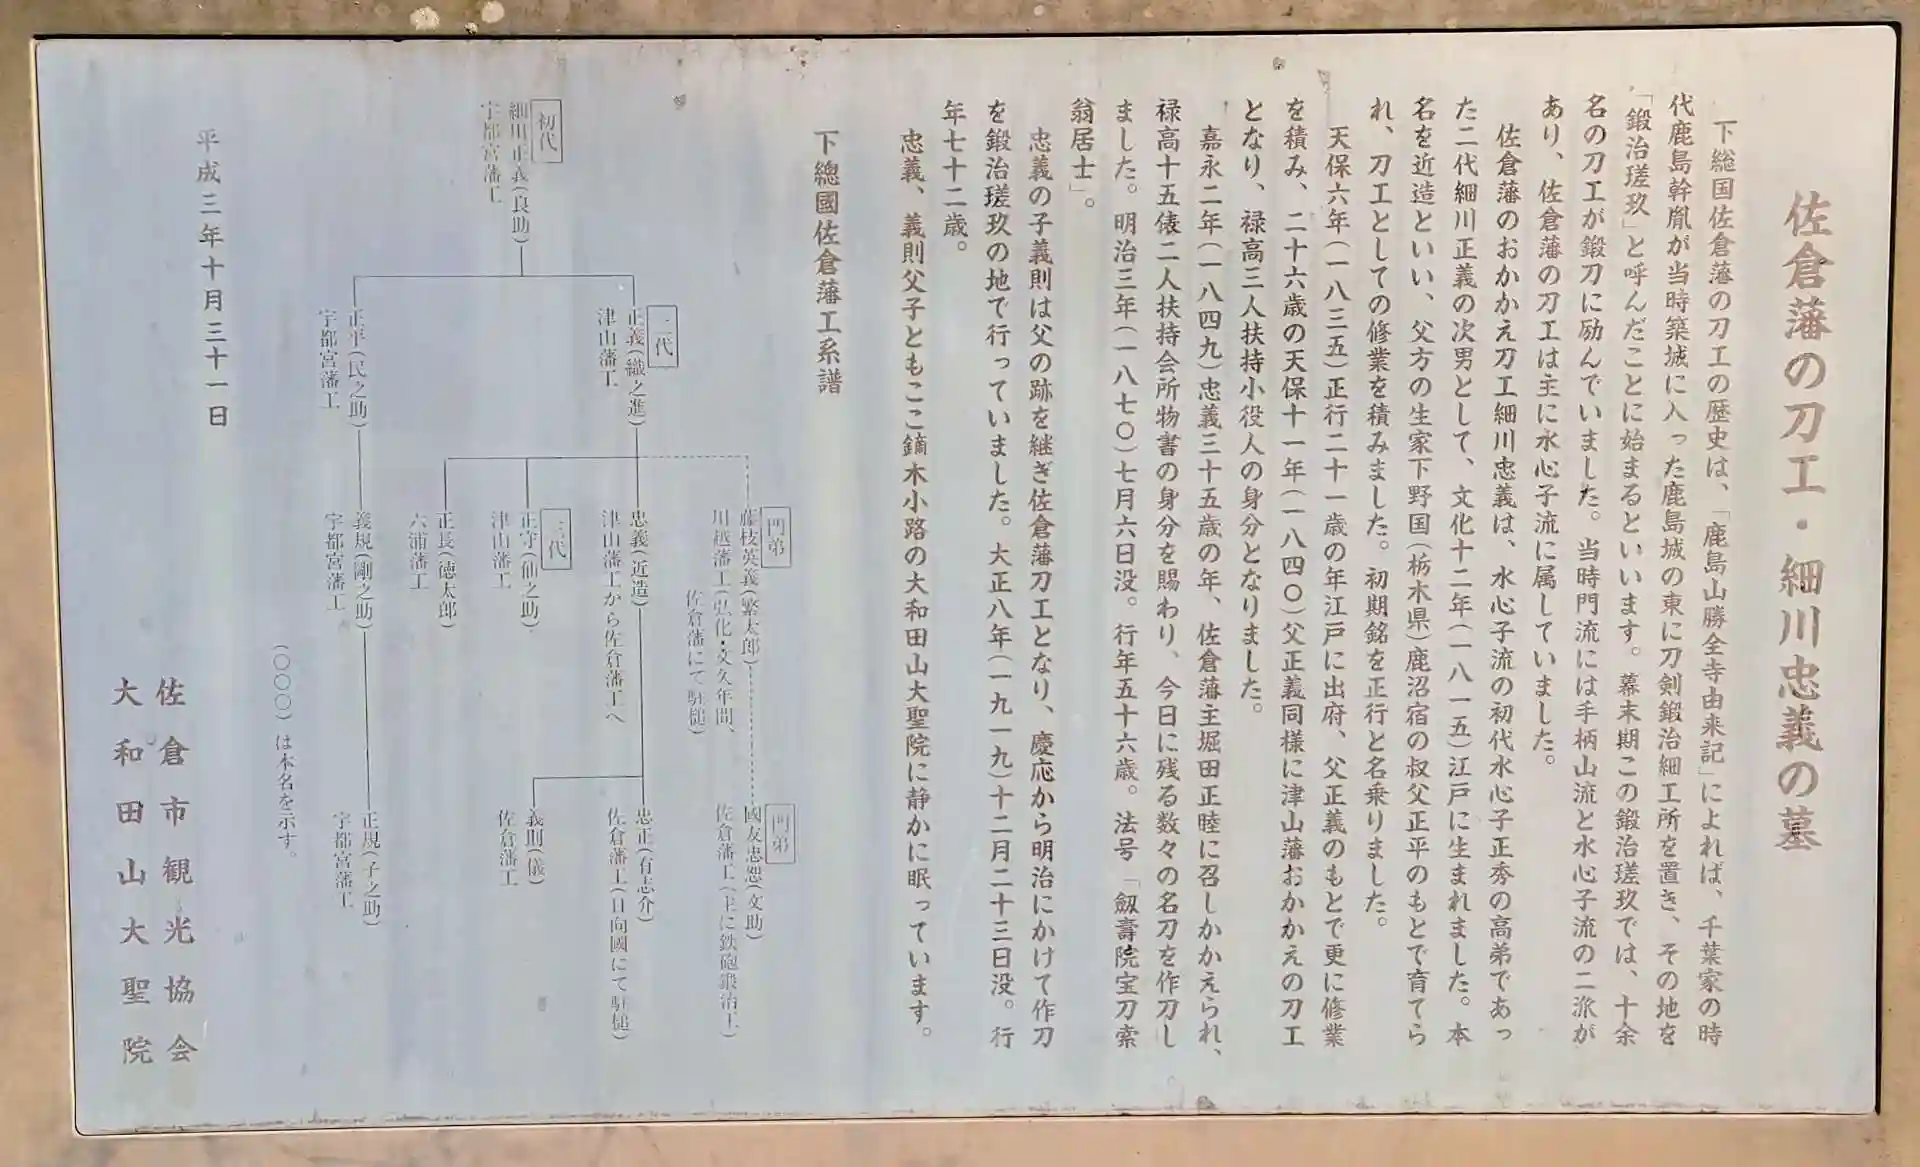 佐倉藩の刀工・細川忠義の墓
下総国佐倉藩の刀工の歴史は、「鹿島山勝全寺由来記」によれば、千葉家の時
代鹿島幹胤が当時築城に入った鹿島城の東に刀剣鍛治細工所を置き、その地を
「鍛治瑳玖」と呼んだことに始まるといいます。幕末期この鍛治瑳玖では、十余
名の刀工が鍛刀に励んでいました。当時門流には手柄山流と水心子流の二派が
あり、佐倉藩の刀工は主に水心子流に属していました。
佐倉藩のおかかえ刀工細川忠義は、水心子流の初代水心子正秀の高弟であっ
た二代細川正義の次男として、文化十二年(一八一五)江戸に生まれました。本
名を近造といい、父方の生家下野国(栃木県)鹿沼宿の叔父正平のもとで育てら
れ、刀工としての修業を積みました。初期銘を正行と名乗りました。
天保六年(一八三五)正行二十一歳の年江戸に出府、父正義のもとで更に修業
を積み、二十六歳の天保十一年(一八四〇)父正義同様に津山藩おかかえの刀工
となり、禄高三人扶持小役人の身分となりました。
嘉永二年(一八四九)忠義三十五歳の年、佐倉藩主堀田正睦に召しかかえられ、
禄高十五俵二人扶持会所物書の身分を賜わり、今日に残る数々の名刀を作刀し
ました。明治三年(一八七〇)七月六日没。行年五十六歳。法号「劔壽院宝刀索
翁居士」。
忠義の子義則は父の跡を継ぎ佐倉藩刀工となり、慶応から明治にかけて作刀
を鍛治瑳玖の地で行っていました。大正八年(一九一九)十二月二十三日没。行
年七十二歳。
忠義、義則父子ともここ鏑木小路の大和田山大聖院に静かに眠っています。
下總國佐倉藩工系譜
初代
細川正義(良助)
宇都宮藩工
二代
正義(織之進)
津山藩工
正平(民之助)
宇都宮藩工
門弟
藤枝英義(繁太郎)
川越藩工(弘化・文久年間、
佐倉藩にて駐槌)
忠義(近造)
津山藩工から佐倉藩工へ
三代
正守(仙之助)
津山藩工
正長(徳太郎)
六浦藩工
義規(剛之助)
宇都宮藩工
門弟
國友忠恕(文助)
佐倉藩工(主に鉄砲鍛治工)
忠正(有志介)
佐倉藩工(日向國にて駐槌)
義則(儀)
佐倉藩工
正規(子之助)
宇都宮藩工
(〇〇〇)は本名を示す。
平成三年十月三十一日
佐倉市観光協会
大和田山大聖院